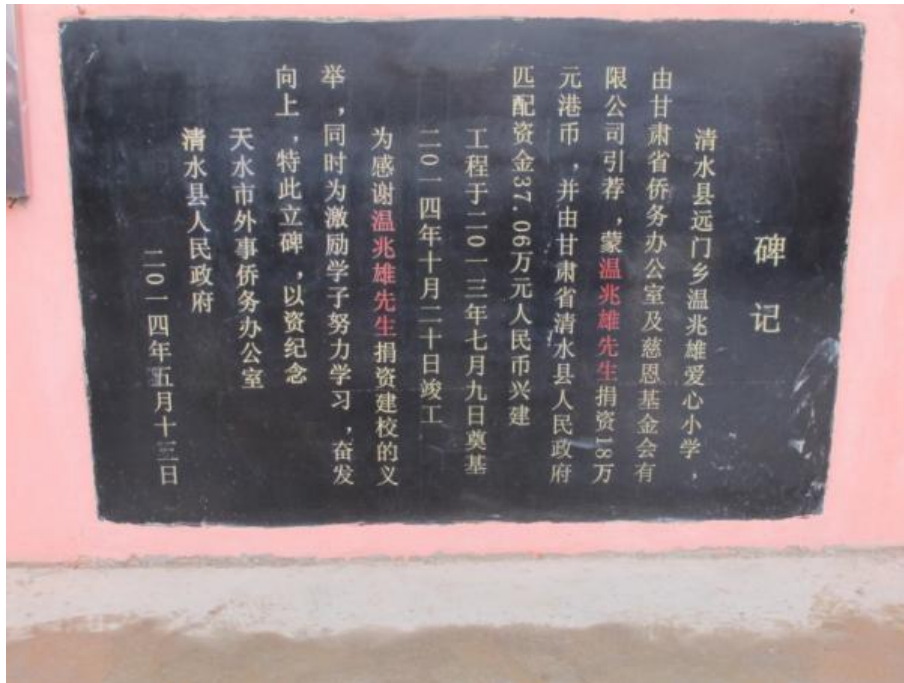 碑记
清水县远门乡温兆雄爱心小学，
由甘肃省侨务办公室及慈恩基金会有
限公司引荐，蒙温兆雄先生捐资18万
元港币，并由甘肃省清水县人民政府
匹配资金37.06万元人民币兴建
工程于二〇一三年七月九日奠基
二〇一四年十月二十日竣工
为感谢温兆雄先生捐资建校的义
举，同时为激励学子努力学习，奋发
向上，特此立碑，以资纪念
天水市外事侨务办公室
清水县人民政府
二〇一四年五月十三日